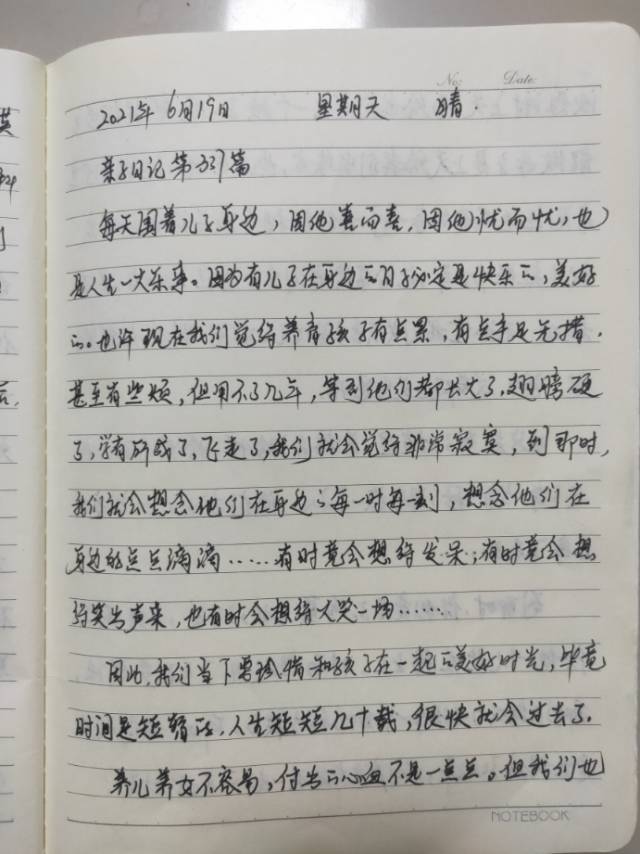 No: Date:
2021年 6月19日 星期天 晴.
亲子日记第337篇
每天围着儿子身边，因他喜而喜，因他忧而忧，也
是人生一大乐事。因为有儿子在身边的日子必定是快乐的，美好
的。也许现在我们觉得养育孩子有点累，有点手足无措.
甚至有些烦，但用不了几年，等到他们都长大了，翅膀硬
了，学有所成了，飞走了，我们就会觉得非常寂寞，到那时，
我们就会想念他们在身边的每一时每一刻，想念他们在
身边的点点滴滴……有时竟会想得发呆；有时竟会想
得笑出声来，也有时会想得大哭一场……
因此，我们当下要珍惜和孩子在一起的美好时光，毕竟
时间是短暂的，人生短短几十载，很快就会过去了.
养儿养女不容易，付出的心血不是一点点。但我们也
NOTEBOOK